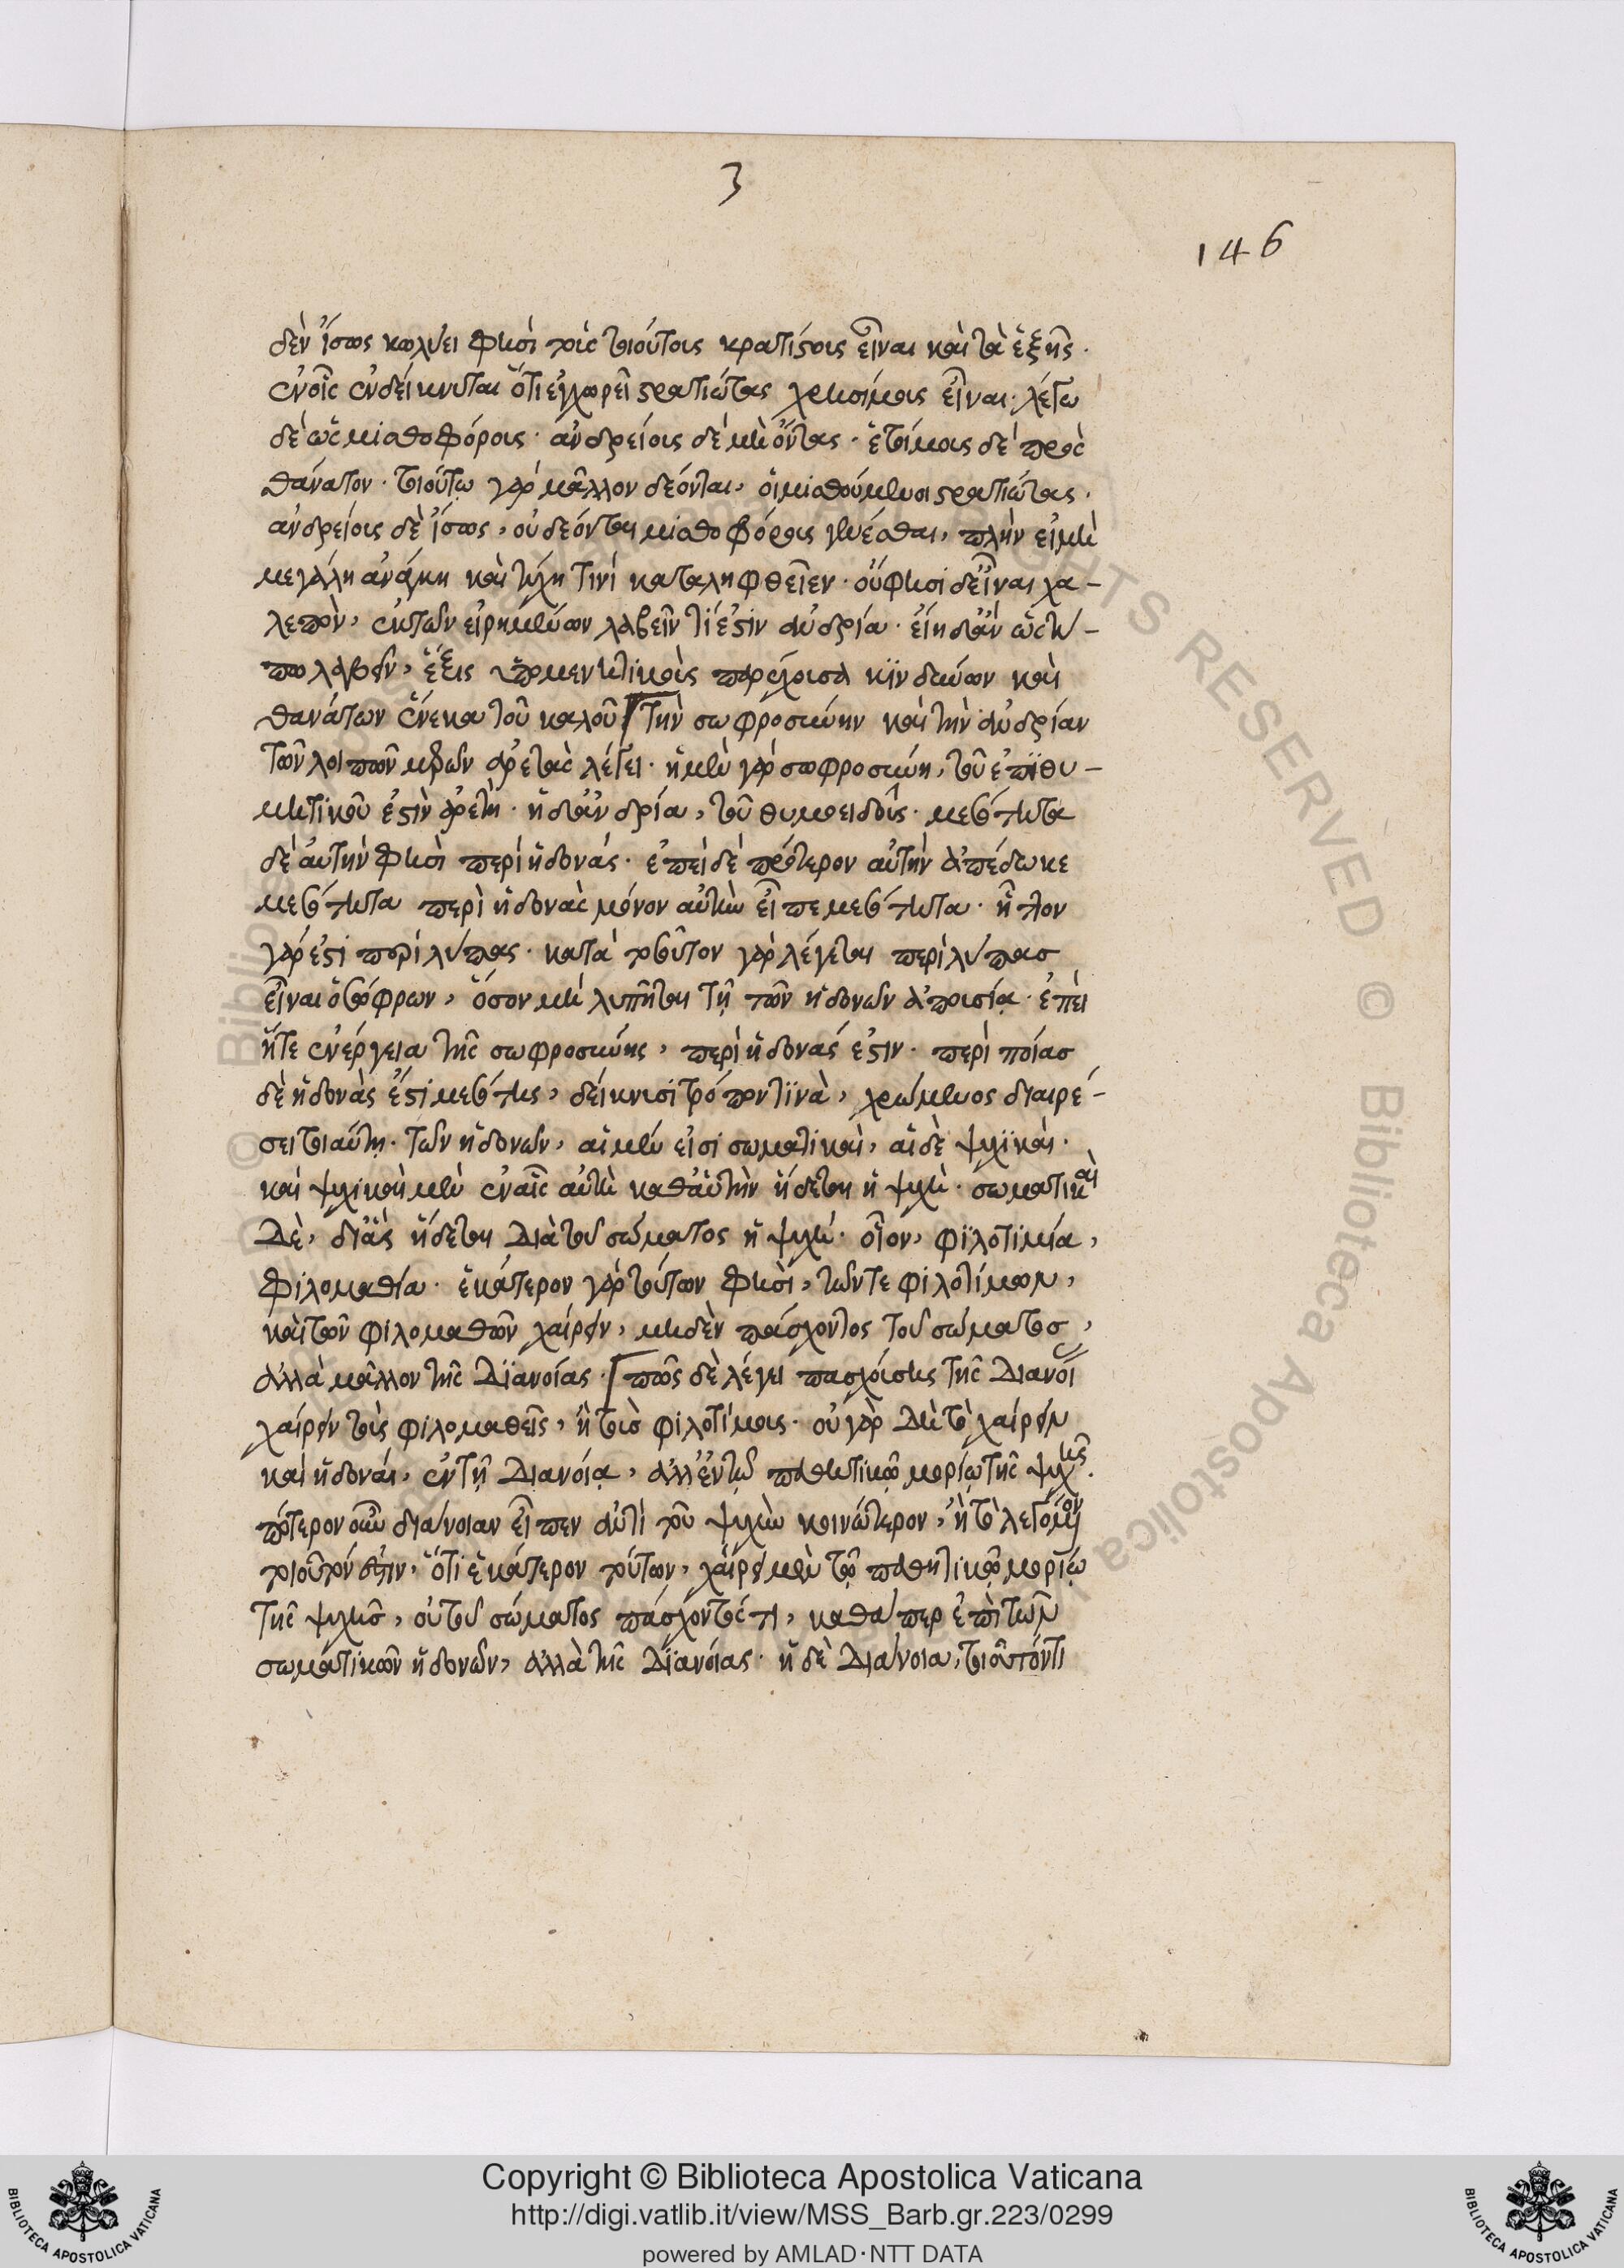 3
146
δὲν ἴσως κωλύει φησὶ τοὶς τοιούτοις κρατίστοις εἶναι καὶ τὰ ἑξῆς.
ἐν οἷς ἐνδείκνυται ὅτι ἐγχωρεῖ στρατιώτας χρησίμοις εἶναι. λέγω
δὲ ὡς μισθοφόροις. ἀνδρείοις δὲ μὴ ὄντας. ἑτοίμοις δὲ πρὸς
θάνατον. τοιούτῳ γὰρ μᾶλλον δεόνται, οἱ μισθούμενοι στρατιώτας.
ἀνδρείοις δὲ ἴσως, οὐ δεόνται μισθοφόροις γενέσθαι, πλὴν εἰ μὴ
μεγάλη ἀνάγκη καὶ τύχη τινί καταληφθεῖεν. οὔ φησι δεῖναι χα-
λεπὸν, ἐκ τῶν εἰρημένων λαβεῖν τί ἐστιν ἀνδρία. εἴη δἂν ὡς ὑ-
πολαβεῖν, ἕξις ὑπομενητικοὶς παρέχουσα κινδύνων καὶ
θανάτων ἕνεκα τοῦ καλοῦ. τὴν σωφροσύνην καὶ τὴν ἀνδρίαν
τῶν λοιπῶν μερῶν ἀρετὰς λέγει. ἡ μὲν γὰρ σωφροσύνη, τοῦ ἐπιθυ-
μητικοῦ ἐστὶν ἀρετὴ. ἡ δ' ἀνδρία, τοῦ θυμοειδοῦς. μεσότητα
δὲ αὐτὴν φησὶ περὶ ἡδονάς. ἐπεὶ δὲ πρότερον αὐτὴν ἀπέδωκε
μεσότητα περὶ ἡδονὰς μόνον αὐτὴν εἶπε μεσότητα. ἧττον
γὰρ ἐστι περὶ λύπας. κατὰ τοῦτον γὰρ λέγεται περὶ λύπας
εἶναι ὁ σώφρων, ὅσον μὴ λυπῆται τῇ τῶν ἡδονῶν ἀπουσίᾳ. ἐπεὶ
ἥτε ἐνέργεια τῆς σωφροσύνης, περὶ ἡδονάς ἐστιν. περὶ ποίας
δὲ ἡδονὰς ἐστὶ μεσότης, δείκνυσι τρόπον τινὰ, χρώμενος διαιρέ-
σει τοιαύτη. τῶν ἡδονῶν, αἱ μὲν εἰσι σωματικαὶ, αἱ δὲ ψυχικαὶ.
καὶ ψυχικαὶ μὲν ἐν αἷς αὐτὴ καθ' αὑτὴν ἥδεται ἡ ψυχὴ. σωματικαὶ
δὲ, δι' ἃς ἥδεται διὰ τοῦ σώματος ἡ ψυχὴ. οἷον, φιλοτιμία,
φιλομαθία. ἑκάτερον γὰρ τούτων φησὶ, τῶν τε φιλοτίμων,
καὶ τῶν φιλομαθῶν χαίρειν, μηδὲν πάσχοντος τοῦ σώματος,
ἀλλὰ μᾶλλον τῆς διανοίας. πῶς δὲ λέγει πασχούσης τῆς διανοί
χαίρειν τοὶς φιλομαθεῖς, ἢ τοὶς φιλοτίμοις. οὐ γὰρ δὴ τὸ χαίρειν
καὶ ἡδοναὶ, ἐν τῇ διανοίᾳ, ἀλλ' ἐν τῷ παθητικῷ μορίῳ τῆς ψυχῆς.
πότερον οὖν διάνοιαν εἶπεν ἀντὶ τοῦ ψυχὴν κοινότερον, ἢ τὸ λεγόμενον
τοιοῦτόν ἐστιν, ὅτι ἑκάτερον τούτων, χαίρει μὲν τῷ παθητικῷ μορίῳ
τῆς ψυχῆς, οὐ τοῦ σώματος πάσχοντός τι, καθάπερ ἐπὶ τῶν
σωματικῶν ἡδονῶν, ἀλλὰ τῆς διανοίας. ἡ δὲ διάνοια, τοιοῦτόν τι